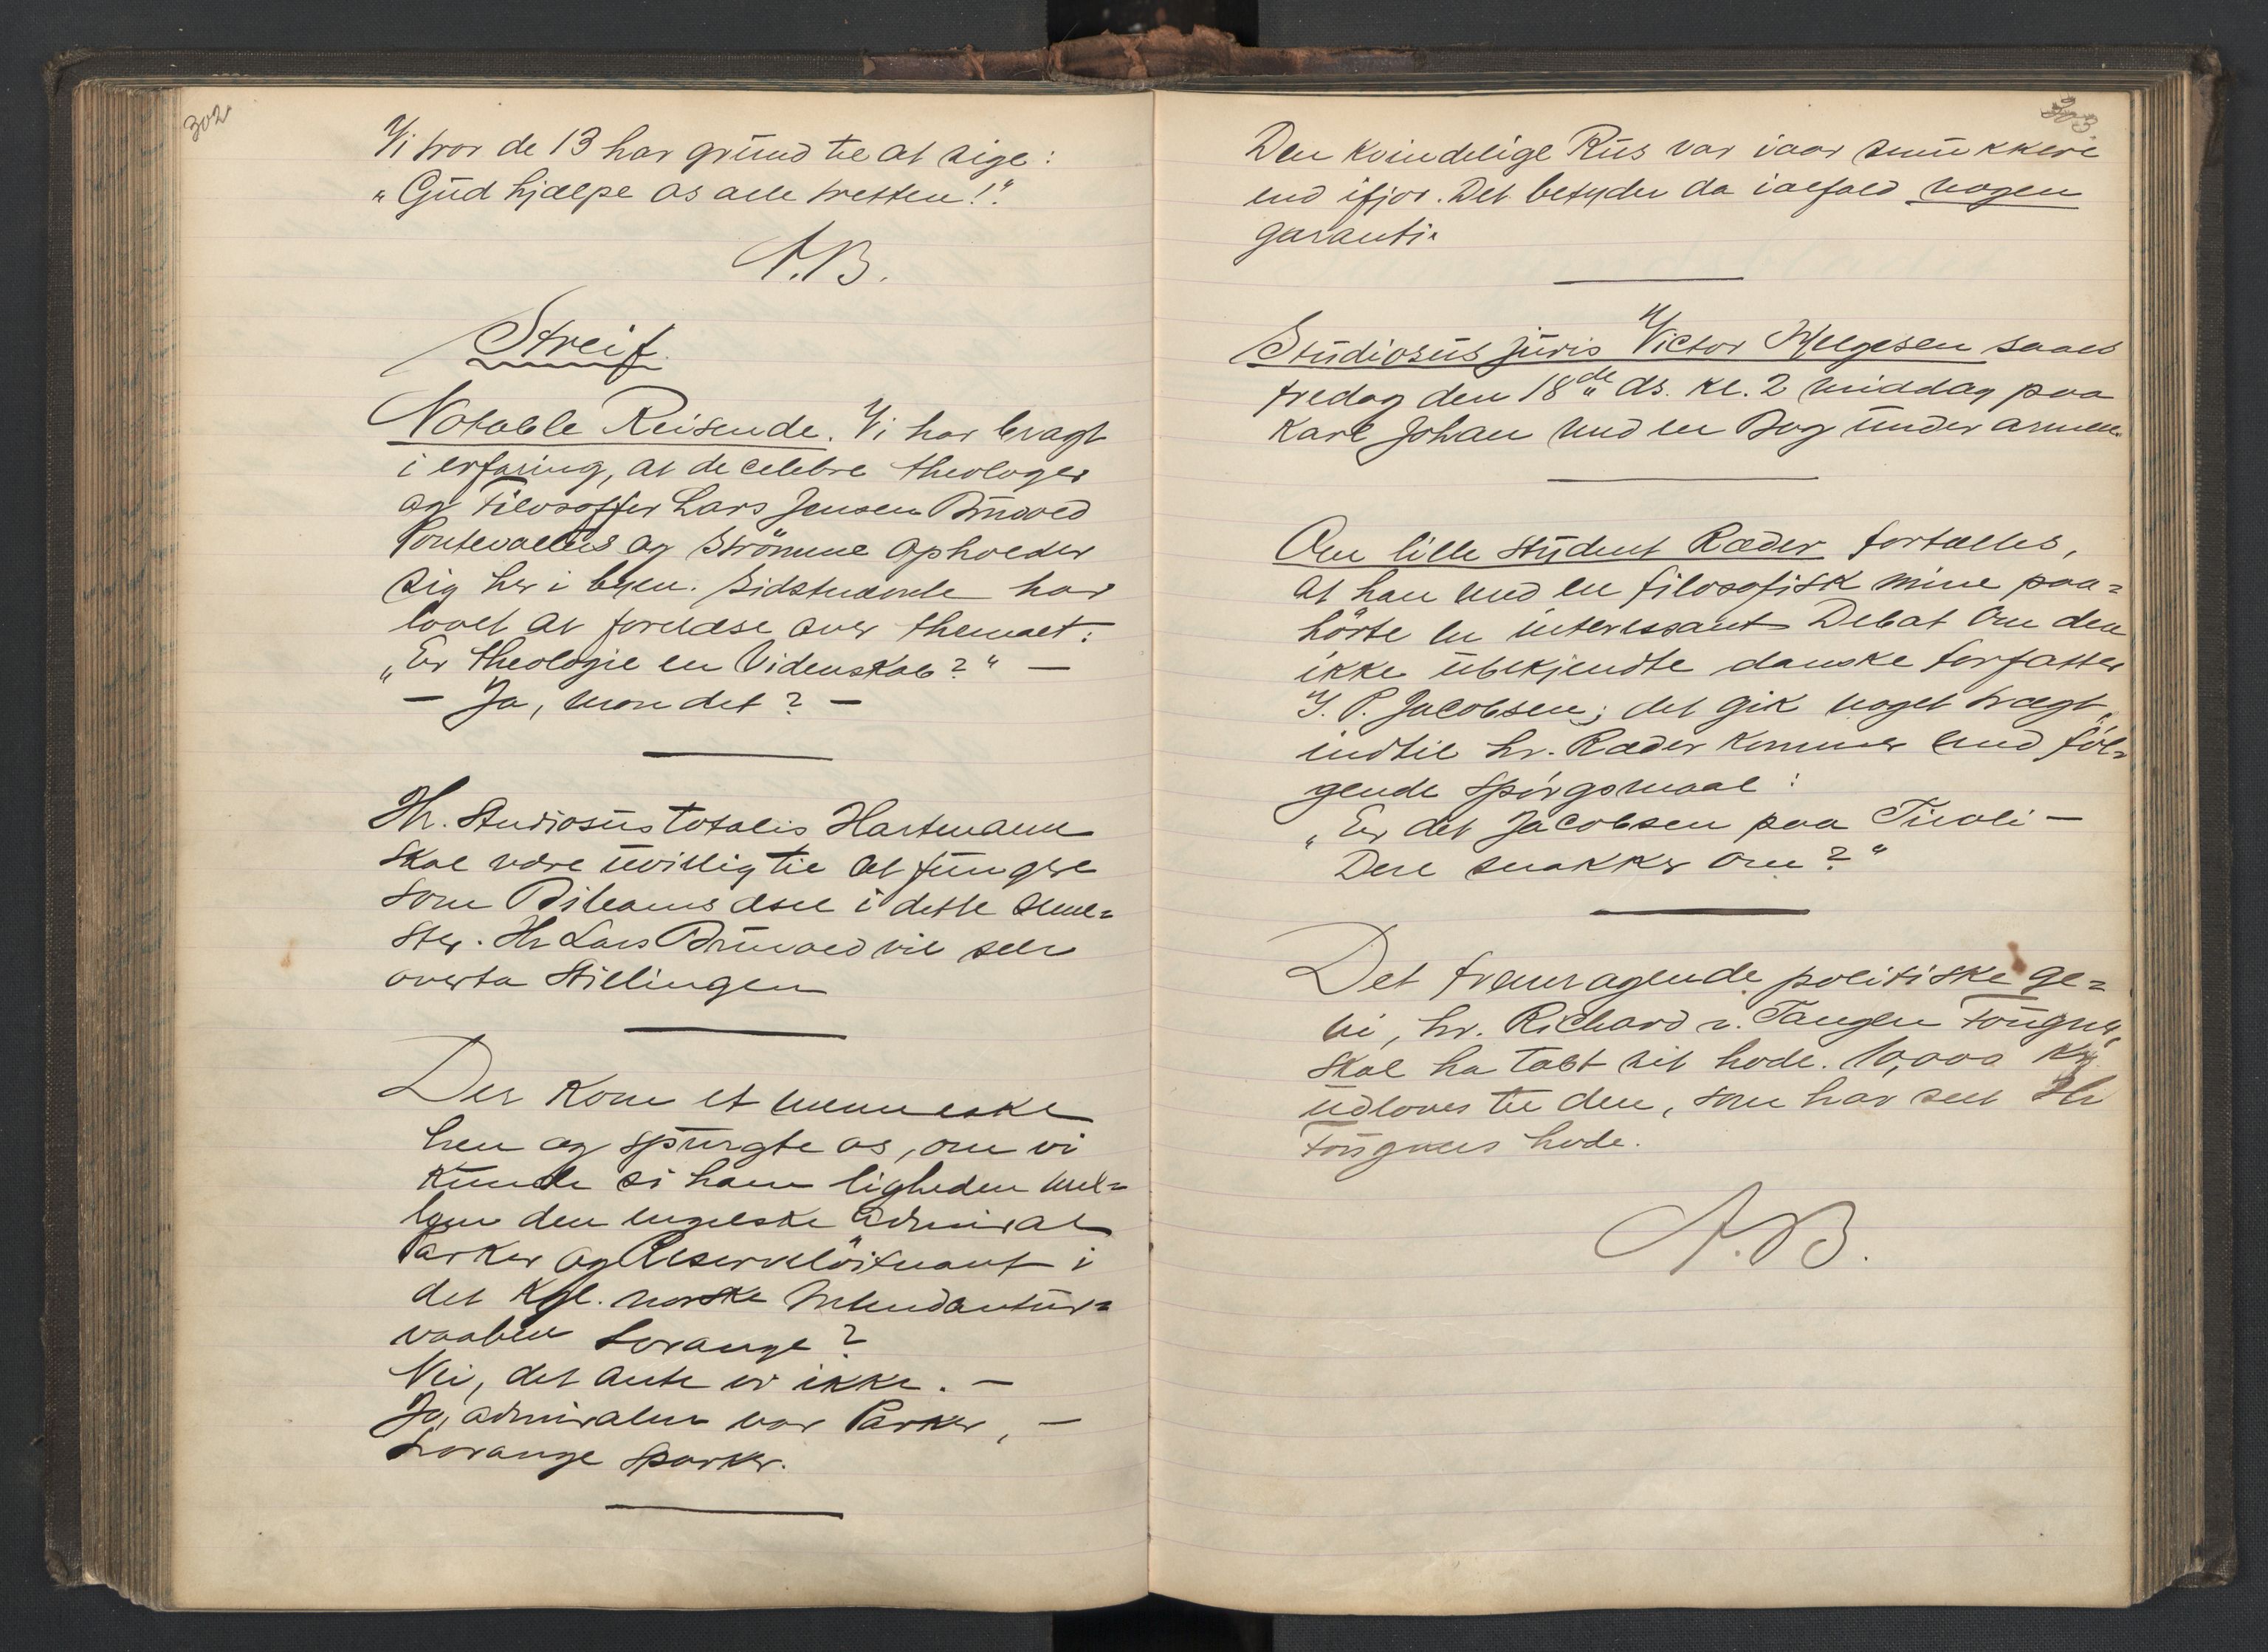 302
Vi tror de 13 har grund til at sige:
"Gud hjælpe os alle tretten!"
A.B.
Streif.
Notable Reisende. Vi har bragt
i erfaring, at de celebre theologer
og Filosoffer Lars Jensen Brusved
Pontevallus og Strömme opholder
sig her i byen. Sidstnævnte har
lovet at forelæse over themaet:
"Er theologie en Videnskab?" —
— Ja, mon det? —
Hr. Studiosus totalis Hartmann
skal være uvillig til at fungere
som Bileams æsel i dette seme=
ster. Hr Lars Brusved vil selv
overta Stillingen
Der kom et menneske
hen og spurgte os, om vi
kunde si ham ligheden mel=
lem den engelske admiral
Parker og Reserveløitnant i
det kgl. norske Intendantur=
vaaben Lorange?
Nei, det ante vi ikke. —
Jo, admiralen var Parker, —
Lorange sparker.
303
Den kvindelige Rus var iaar smukkere
end ifjor. Det betyder da ialfald nogen
garanti.
Studiosus juris Victor Helgesen saaes
fredag den 18de ds. kl. 2 middag paa
Karl Johan med en Bog under armen.
Om lille student Ræder fortælles,
at han med en filosofisk mine paa=
hörte en interessant Debat om den
ikke ubekjendte danske forfatter
J. P. Jacobsen; det gik noget trægt,
indtil hr. Ræder kommer med föl=
gende spörgsmaal:
"Er det Jacobsen paa Tivoli —
Dere snakker om?"
Det fremragende politiske ge=
ni, hr. Richard v. Tangen Tougner,
skal ha tabt sit hode. 10,000 Kr
udloves til den, som har set Hr
Tougners hode.
A.B.